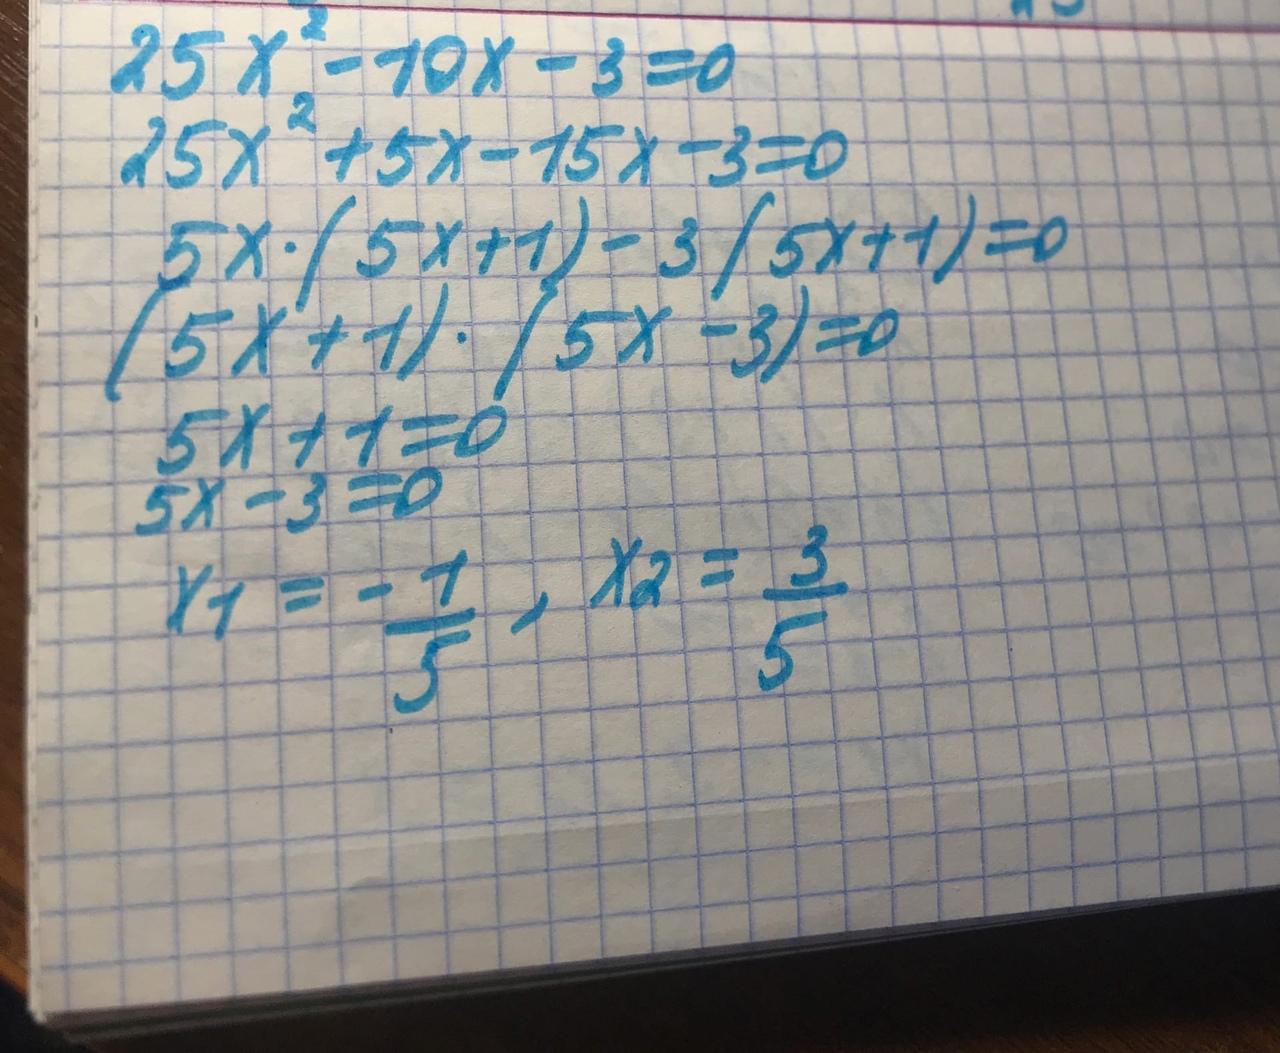 25x² - 10x - 3 = 0
25x² + 5x - 15x - 3 = 0
5x · (5x + 1) - 3 (5x + 1) = 0
(5x + 1) · (5x - 3) = 0
5x + 1 = 0
5x - 3 = 0
x1 = - 1/5 , x2 = 3/5